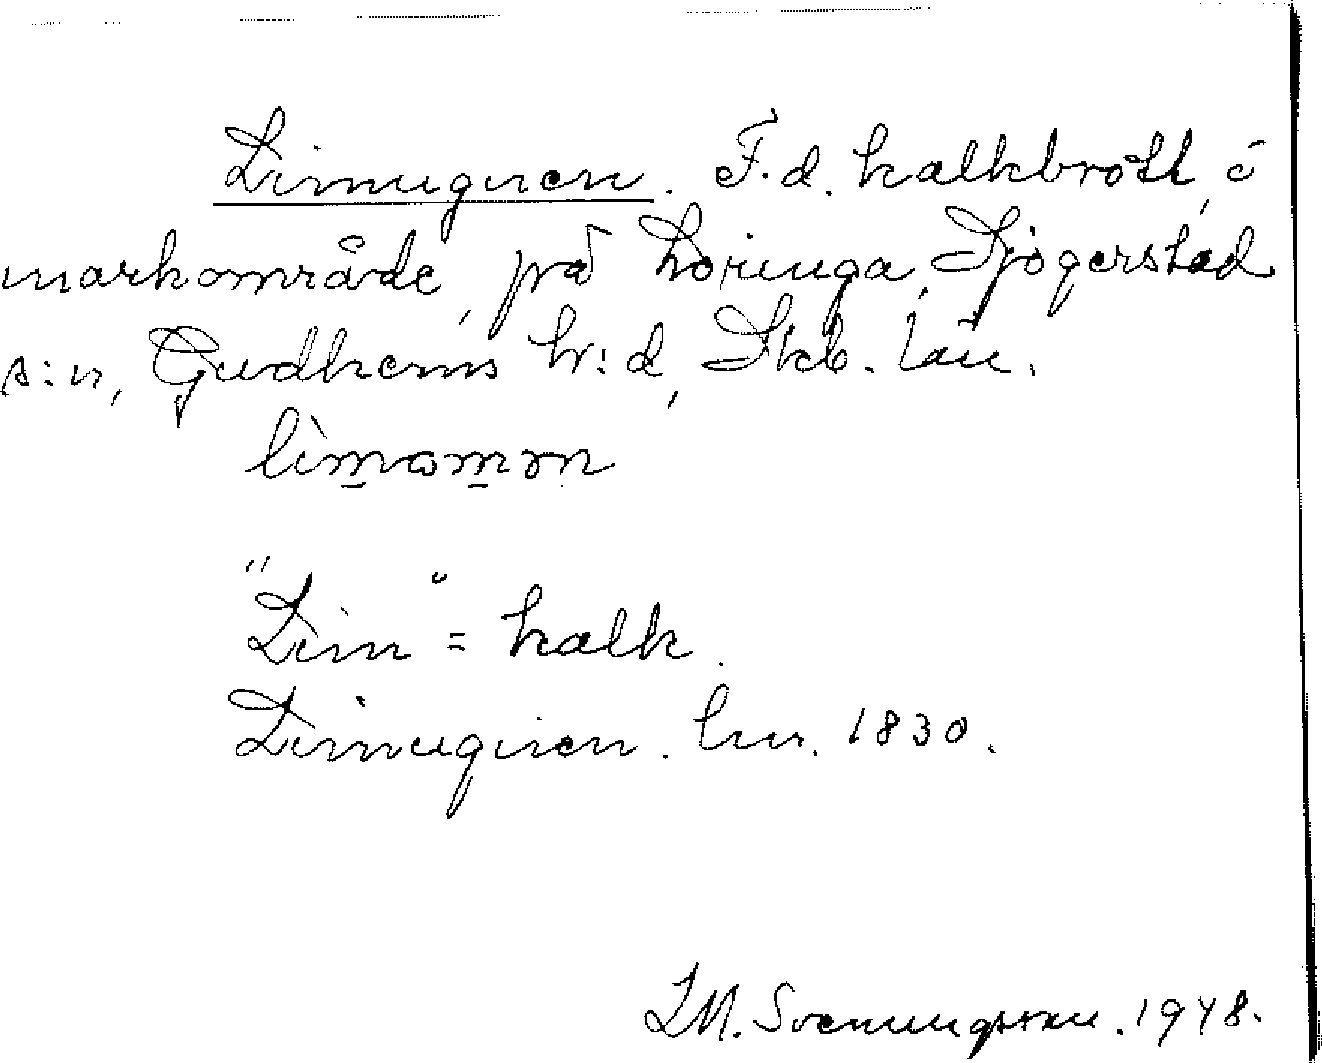 Limugnen. F.d. kalkbrott, ö
markområde, på Horunga, Sjögerstad
s:n, Gudhems h:d, Skb. län.

"Lim" = kalk.
Limugnen. lm. 1830.
L M. Svenungsson. 1948.